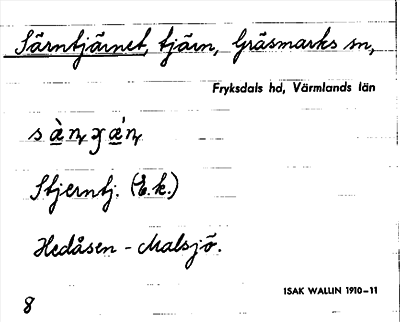 Särntjärnet, tjärn, Gräsmarks sn,
Fryksdals hd, Värmlands län
Stjerntj. (E.k.)
Hedåsen - Malsjö.
ISAK WALLIN 1910-11
8